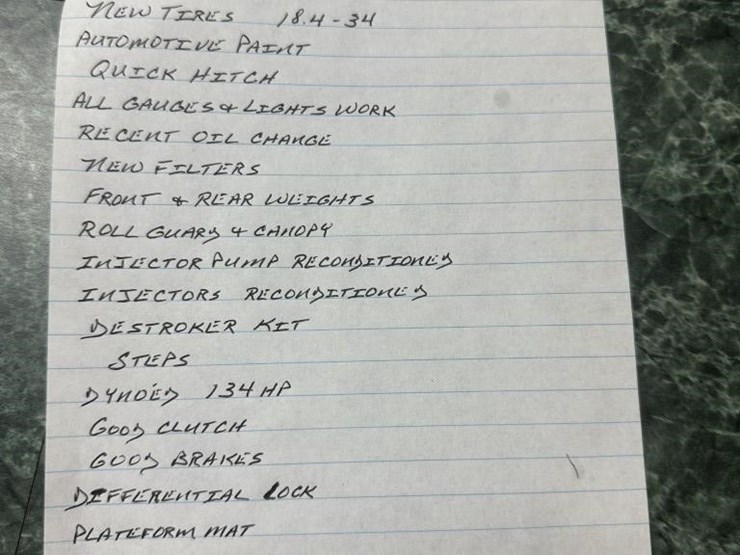 NEW TIRES 18.4-34
AUTOMOTIVE PAINT
QUICK HITCH
ALL GAUGES & LIGHTS WORK
RECENT OIL CHANGE
NEW FILTERS
FRONT & REAR WEIGHTS
ROLL GUARD & CANOPY
INJECTOR PUMP RECONDITIONED
INJECTORS RECONDITIONED
DESTROKER KIT
STEPS
DYNOED 134 HP
GOOD CLUTCH
GOOD BRAKES
DIFFERENTIAL LOCK
PLATEFORM MAT